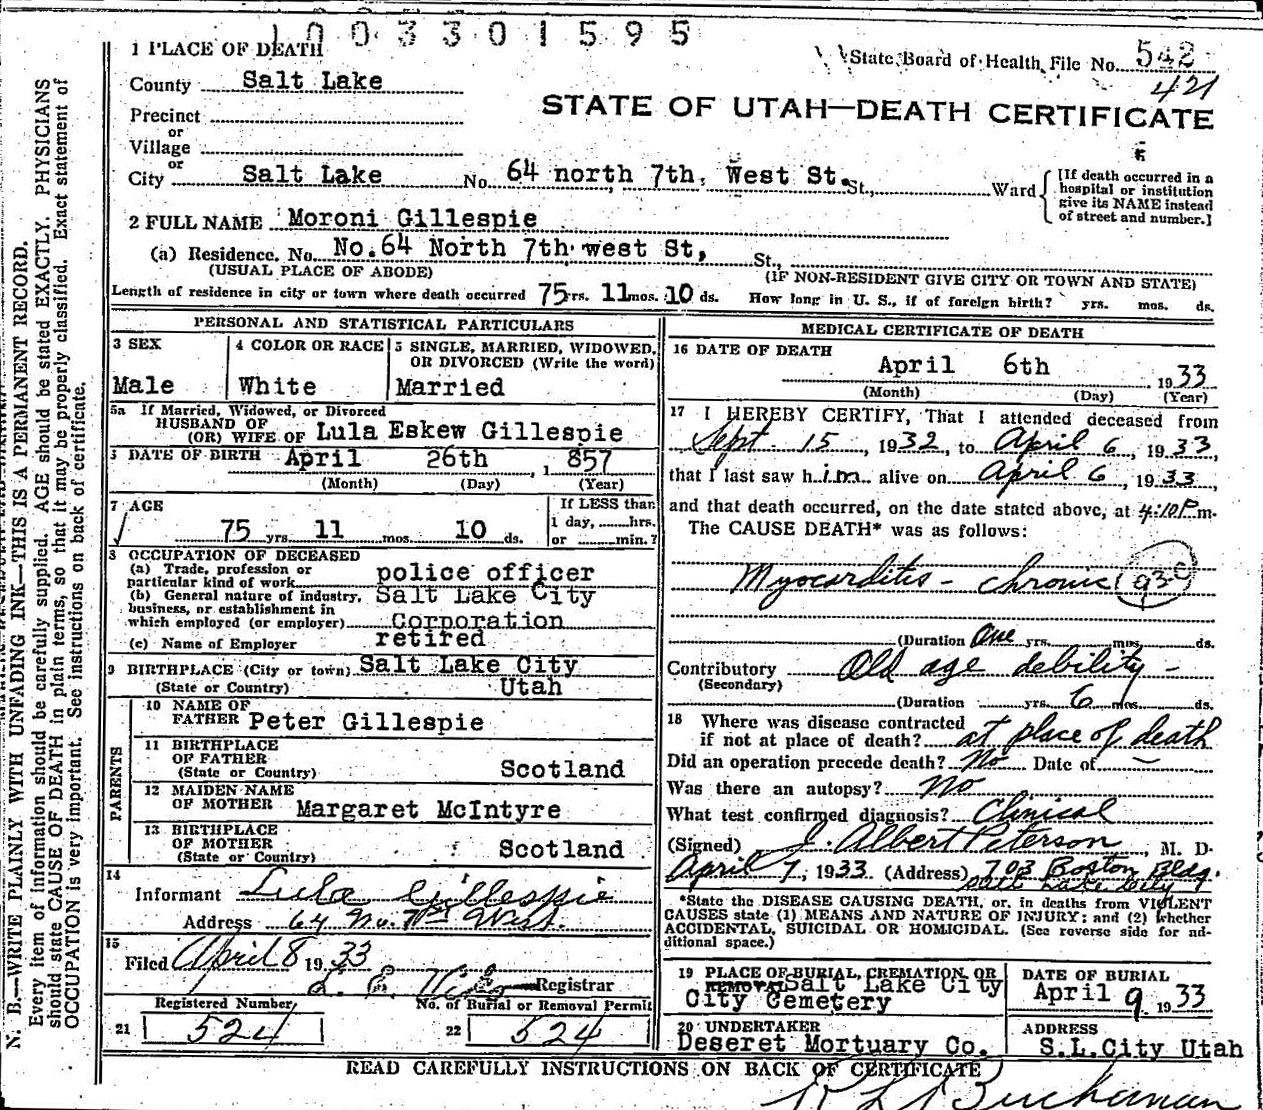 1003301595
1 PLACE OF DEATH
State Board of Health File No. 542
421
County Salt Lake
STATE OF UTAH—DEATH CERTIFICATE
Precinct
or
Village
or
City Salt Lake No. 64 north 7th, West St. St., Ward
[If death occurred in a
hospital or institution
give its NAME instead
of street and number.]
2 FULL NAME Moroni Gillespie
(a) Residence. No. No.64 North 7th west St, St.,
(USUAL PLACE OF ABODE) (IF NON-RESIDENT GIVE CITY OR TOWN AND STATE)
Length of residence in city or town where death occurred 75 yrs. 11 mos. 10 ds. How long in U. S., if of foreign birth? yrs. mos. ds.
PERSONAL AND STATISTICAL PARTICULARS
3 SEX
Male
4 COLOR OR RACE
White
5 SINGLE, MARRIED, WIDOWED,
OR DIVORCED (Write the word)
Married
5a If Married, Widowed, or Divorced
HUSBAND OF
(OR) WIFE OF Lula Eskew Gillespie
DATE OF BIRTH April 26th 1857
(Month) (Day) (Year)
7 AGE
75 yrs. 11 mos. 10 ds.
If LESS than
1 day, hrs.
or min.?
8 OCCUPATION OF DECEASED
(a) Trade, profession or
particular kind of work police officer
(b) General nature of industry, Salt Lake City
business, or establishment in
which employed (or employer) Corporation
(c) Name of Employer retired
9 BIRTHPLACE (City or town) Salt Lake City
(State or Country) Utah
PARENTS
10 NAME OF
FATHER Peter Gillespie
11 BIRTHPLACE
OF FATHER
(State or Country) Scotland
12 MAIDEN NAME
OF MOTHER Margaret McIntyre
13 BIRTHPLACE
OF MOTHER
(State or Country) Scotland
14
Informant Lula Gillespie
Address 64 No. 7th West.
15
Filed April 8 1933
L. E.
Registrar
Registered Number
21 524
No. of Burial or Removal Permit
22 524
MEDICAL CERTIFICATE OF DEATH
16 DATE OF DEATH
April 6th 1933
(Month) (Day) (Year)
17 I HEREBY CERTIFY, That I attended deceased from
Sept. 15, 1932, to April 6, 1933,
that I last saw him alive on April 6, 1933,
and that death occurred, on the date stated above, at 4:10 P.m.
The CAUSE DEATH* was as follows:
Myocarditis - chronic 93c
(Duration One yrs. mos. ds.
Contributory Old age debility -
(Secondary)
(Duration yrs. 6 mos. ds.
18 Where was disease contracted
if not at place of death? at place of death
Did an operation precede death? No Date of —
Was there an autopsy? No
What test confirmed diagnosis? Clinical
(Signed) J. Albert Peterson, M. D.
April 7, 1933 (Address) 703 Boston Bldg.
Salt Lake City
*State the DISEASE CAUSING DEATH, or, in deaths from VIOLENT
CAUSES state (1) MEANS AND NATURE OF INJURY; and (2) whether
ACCIDENTAL, SUICIDAL OR HOMICIDAL. (See reverse side for ad-
ditional space.)
19 PLACE OF BURIAL, CREMATION, OR
REMOVAL Salt Lake City
City Cemetery
DATE OF BURIAL
April 9 1933
20 UNDERTAKER
Deseret Mortuary Co.
ADDRESS
S.L.City Utah
READ CAREFULLY INSTRUCTIONS ON BACK OF CERTIFICATE
Buchanan
N. B.—WRITE PLAINLY WITH UNFADING INK—THIS IS A PERMANENT RECORD.
Every item of information should be carefully supplied. AGE should be stated EXACTLY. PHYSICIANS
should state CAUSE OF DEATH in plain terms, so that it may be properly classified. Exact statement of
OCCUPATION is very important. See instructions on back of certificate.